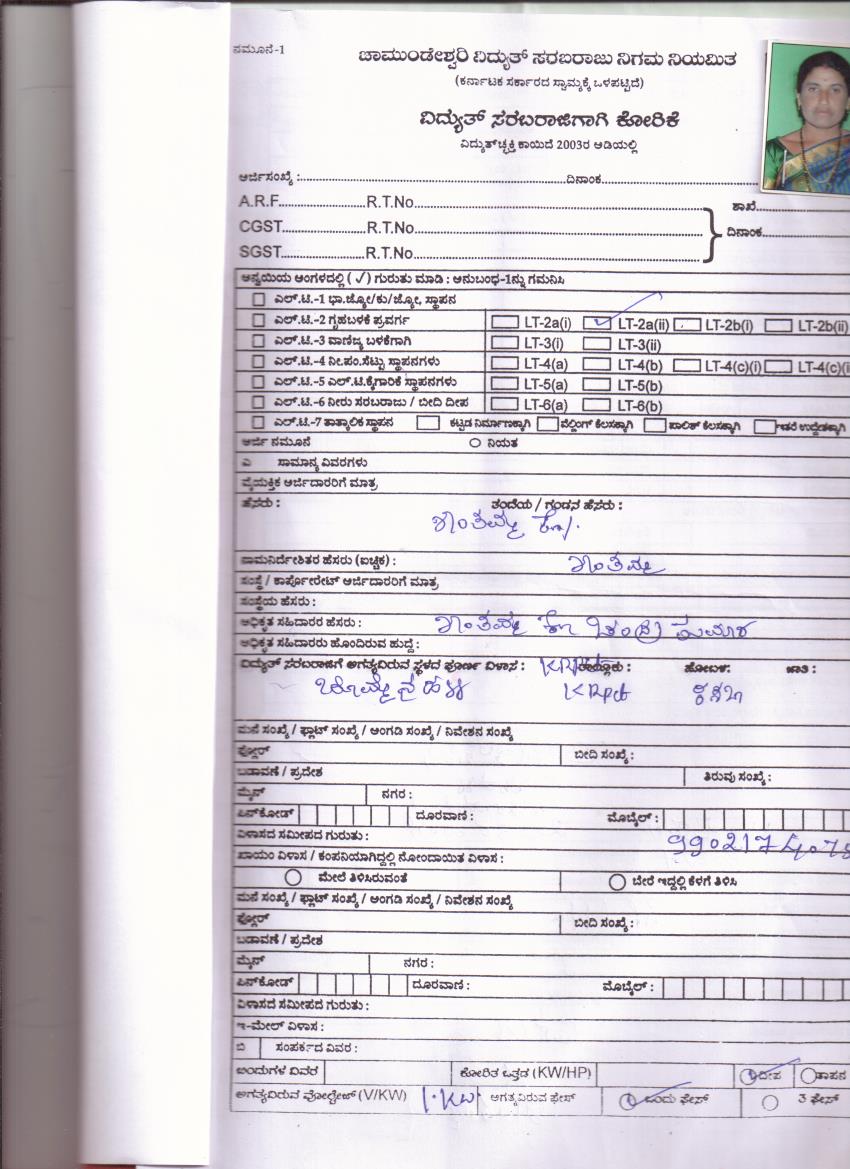 ನಮೂನೆ-1
ಚಾಮುಂಡೇಶ್ವರಿ ವಿದ್ಯುತ್ ಸರಬರಾಜು ನಿಗಮ ನಿಯಮಿತ
(ಕರ್ನಾಟಕ ಸರ್ಕಾರದ ಸ್ವಾಮ್ಯಕ್ಕೆ ಒಳಪಟ್ಟಿದೆ)
ವಿದ್ಯುತ್ ಸರಬರಾಜಿಗಾಗಿ ಕೋರಿಕೆ
ವಿದ್ಯುತ್‌ಚ್ಛಕ್ತಿ ಕಾಯಿದೆ 2003ರ ಅಡಿಯಲ್ಲಿ
ಅರ್ಜಿಸಂಖ್ಯೆ :.......... ದಿನಾಂಕ..........
A.R.F.......... R.T.No.......... ಶಾಖೆ..........
CGST.......... R.T.No.......... ದಿನಾಂಕ..........
SGST.......... R.T.No..........
ಅನ್ವಯಿಯ ಅಂಗಳದಲ್ಲಿ (✓) ಗುರುತು ಮಾಡಿ : ಅನುಬಂಧ-1ನ್ನು ಗಮನಿಸಿ
ಎಲ್.ಟಿ.-1 ಭಾ.ಜ್ಯೋ/ಕು/ಜ್ಯೋ, ಸ್ಥಾಪನ
ಎಲ್.ಟಿ.-2 ಗೃಹಬಳಕೆ ಪ್ರವರ್ಗ LT-2a(i) LT-2a(ii) LT-2b(i) LT-2b(ii)
ಎಲ್.ಟಿ.-3 ವಾಣಿಜ್ಯ ಬಳಕೆಗಾಗಿ LT-3(i) LT-3(ii)
ಎಲ್.ಟಿ.-4 ನೀ.ಪಂ.ಸೆಟ್ಟು ಸ್ಥಾಪನಗಳು LT-4(a) LT-4(b) LT-4(c)(i) LT-4(c)(i
ಎಲ್.ಟಿ.-5 ಎಲ್.ಟಿ.ಕೈಗಾರಿಕೆ ಸ್ಥಾಪನಗಳು LT-5(a) LT-5(b)
ಎಲ್.ಟಿ.-6 ನೀರು ಸರಬರಾಜು / ಬೀದಿ ದೀಪ LT-6(a) LT-6(b)
ಎಲ್.ಟಿ.-7 ತಾತ್ಕಾಲಿಕ ಸ್ಥಾಪನ ಕಟ್ಟಡ ನಿರ್ಮಾಣಕ್ಕಾಗಿ ವೆಲ್ಡಿಂಗ್ ಕೆಲಸಕ್ಕಾಗಿ ಪಾಲಿಶ್ ಕೆಲಸಕ್ಕಾಗಿ ಇತರೆ ಉದ್ದೇಶಕ್ಕಾಗಿ
ಅರ್ಜಿ ನಮೂನೆ ನಿಯತ
ಎ ಸಾಮಾನ್ಯ ವಿವರಗಳು
ವೈಯಕ್ತಿಕ ಅರ್ಜಿದಾರರಿಗೆ ಮಾತ್ರ
ಹೆಸರು : ತಂದೆಯ / ಗಂಡನ ಹೆಸರು :
ಶಾಂತಮ್ಮ ಕೋ.
ನಾಮನಿರ್ದೇಶಿತರ ಹೆಸರು (ಐಚ್ಛಿಕ) : ಶಾಂತಮ್ಮ
ಸಂಸ್ಥೆ / ಕಾರ್ಪೋರೇಟ್ ಅರ್ಜಿದಾರರಿಗೆ ಮಾತ್ರ
ಸಂಸ್ಥೆಯ ಹೆಸರು :
ಅಧಿಕೃತ ಸಹಿದಾರರ ಹೆಸರು : ಶಾಂತಮ್ಮ ಕೋ
ಅಧಿಕೃತ ಸಹಿದಾರರು ಹೊಂದಿರುವ ಹುದ್ದೆ :
ವಿದ್ಯುತ್ ಸರಬರಾಜಿಗೆ ಅಗತ್ಯವಿರುವ ಸ್ಥಳದ ಪೂರ್ಣ ವಿಳಾಸ : ತಾಲ್ಲೂಕು : ಹೋಬಳಿ: ಜಾತಿ :
ಬೊಮ್ಮೇನಹಳ್ಳಿ KRpet ಕಸಬಾ
ಮನೆ ಸಂಖ್ಯೆ / ಫ್ಲಾಟ್ ಸಂಖ್ಯೆ / ಅಂಗಡಿ ಸಂಖ್ಯೆ / ನಿವೇಶನ ಸಂಖ್ಯೆ
ಫ್ಲೋರ್ ಬೀದಿ ಸಂಖ್ಯೆ :
ಬಡಾವಣೆ / ಪ್ರದೇಶ ತಿರುವು ಸಂಖ್ಯೆ :
ಮೈನ್ ನಗರ :
ಪಿನ್‌ಕೋಡ್ ದೂರವಾಣಿ : ಮೊಬೈಲ್ :
ವಿಳಾಸದ ಸಮೀಪದ ಗುರುತು : 99021740
ಖಾಯಂ ವಿಳಾಸ / ಕಂಪನಿಯಾಗಿದ್ದಲ್ಲಿ ನೋಂದಾಯಿತ ವಿಳಾಸ :
ಮೇಲೆ ತಿಳಿಸಿರುವಂತೆ ಬೇರೆ ಇದ್ದಲ್ಲಿ ಕೆಳಗೆ ತಿಳಿಸಿ
ಮನೆ ಸಂಖ್ಯೆ / ಫ್ಲಾಟ್ ಸಂಖ್ಯೆ / ಅಂಗಡಿ ಸಂಖ್ಯೆ / ನಿವೇಶನ ಸಂಖ್ಯೆ
ಫ್ಲೋರ್ ಬೀದಿ ಸಂಖ್ಯೆ :
ಬಡಾವಣೆ / ಪ್ರದೇಶ
ಮೈನ್ ನಗರ :
ಪಿನ್‌ಕೋಡ್ ದೂರವಾಣಿ : ಮೊಬೈಲ್ :
ವಿಳಾಸದ ಸಮೀಪದ ಗುರುತು :
ಇ-ಮೇಲ್ ವಿಳಾಸ :
ಬಿ ಸಂಪರ್ಕದ ವಿವರ :
ಅಂದುಗಳ ವಿವರ ಕೋರಿತ ಒತ್ತಡ (KW/HP) ದೀಪ ತಾಪನ
ಅಗತ್ಯವಿರುವ ವೋಲ್ಟೇಜ್ (V/KW) 1.KW. ಅಗತ್ಯವಿರುವ ಫೇಸ್ ಒಂದು ಫೇಸ್ 3 ಫೇಸ್